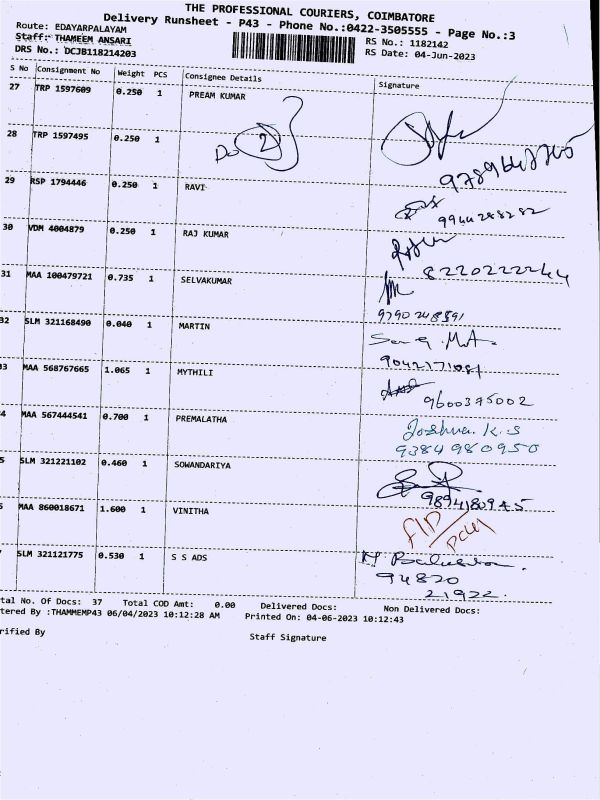 THE PROFESSIONAL COURIERS, COIMBATORE
Delivery Runsheet - P43 - Phone No.:0422-3505555 - Page No.:3
Route: EDAYARPALAYAM
Staff: THAMEEM ANSARI
DRS No.: DCJB118214203
RS No.: 1182142
RS Date: 04-Jun-2023
S No Consignment No Weight PCS Consignee Details Signature
27 TRP 1597609 0.250 1 PREAM KUMAR
Do 2
28 TRP 1597495 0.250 1
29 RSP 1794446 0.250 1 RAVI
9944288282
30 VDM 4004879 0.250 1 RAJ KUMAR
8220222244
31 MAA 100479721 0.735 1 SELVAKUMAR
32 SLM 321168490 0.040 1 MARTIN
33 MAA 568767665 1.065 1 MYTHILI
9600375002
4 MAA 567444541 0.700 1 PREMALATHA
Joshua. K. S
9384980950
5 SLM 321221102 0.460 1 SOWANDARIYA
9894180945
MAA 860018671 1.600 1 VINITHA
SLM 321121775 0.530 1 S S ADS
94820
21922.
tal No. Of Docs: 37 Total COD Amt: 0.00 Delivered Docs: Non Delivered Docs:
tered By :THAMMEMP43 06/04/2023 10:12:28 AM Printed On: 04-06-2023 10:12:43
rified By Staff Signature